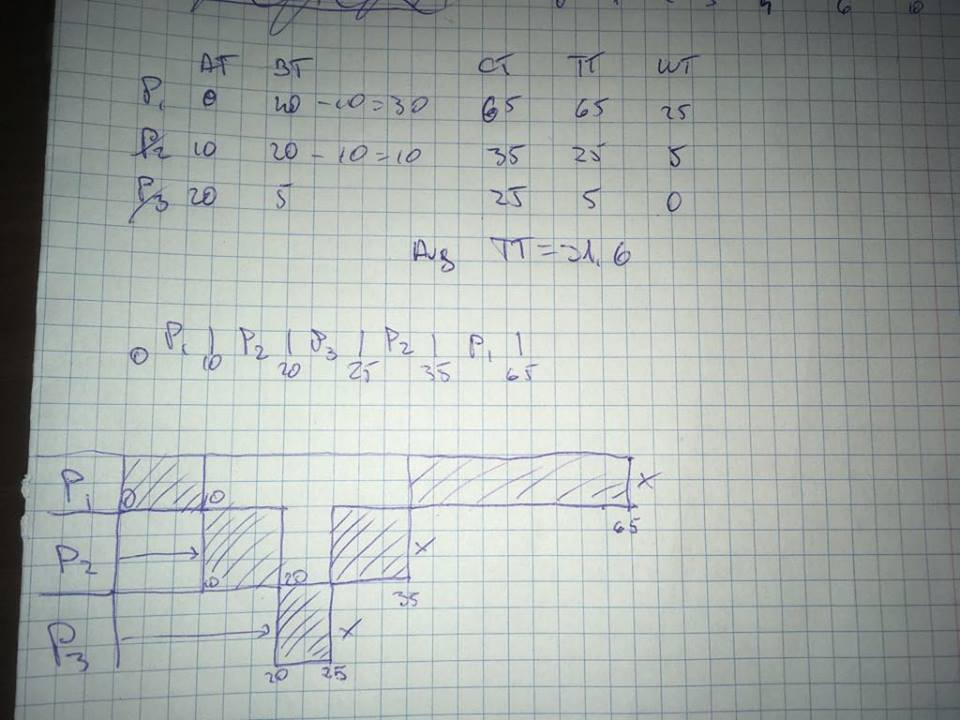 AT BT CT TT WT
P1 0 40 - 10 = 30 65 65 25
P2 10 20 - 10 = 10 35 25 5
P3 20 5 25 5 0
Avg TT = 31,6
0 P1 | 10 P2 | 20 P3 | 25 P2 | 35 P1 | 65
P1 0 10 x 65
P2 10 20 x 35
P3 x 20 25